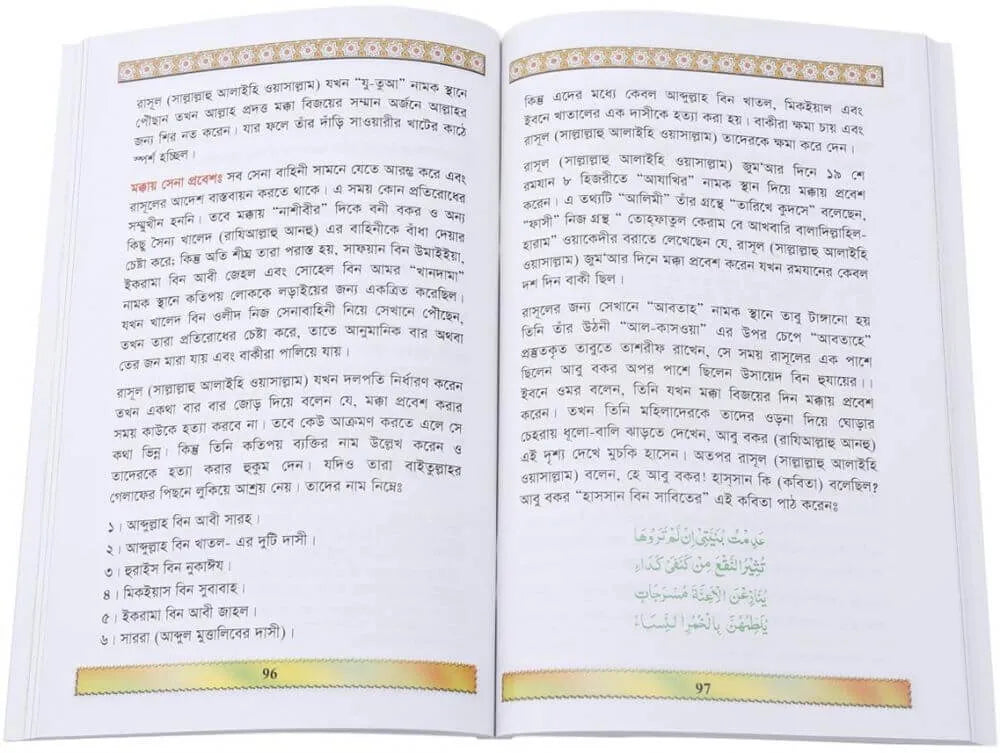 রাসূল (সাল্লাল্লাহু আলাইহি ওয়াসাল্লাম) যখন “যু-তুআ” নামক স্থানে
পৌছান তখন আল্লাহ প্রদত্ত মক্কা বিজয়ের সম্মান অর্জনে আল্লাহর
জন্য শির নত করেন। যার ফলে তাঁর দাঁড়ি সাওয়ারীর খাটের কাঠে
স্পর্শ হচ্ছিল।
মক্কায় সেনা প্রবেশঃ সব সেনা বাহিনী সামনে যেতে আরম্ভ করে এবং
রাসূলের আদেশ বাস্তবায়ন করতে থাকে। এ সময় কোন প্রতিরোধের
সম্মুখীন হননি। তবে মক্কায় “নাশীবীর” দিকে বনী বকর ও অন্য
কিছু সৈন্য খালেদ (রাযিআল্লাহু আনহু) এর বাহিনীকে বাঁধা দেয়ার
চেষ্টা করে; কিন্তু অতি শীঘ্র তারা পরাস্ত হয়, সাফয়ান বিন উমাইইয়া,
ইকরামা বিন আবী জেহল এবং সোহেল বিন আমর “খানদামা”
নামক স্থানে কতিপয় লোককে লড়াইয়ের জন্য একত্রিত করেছিল।
যখন খালেদ বিন ওলীদ নিজ সেনাবাহিনী নিয়ে সেখানে পৌছেন,
তখন তারা প্রতিরোধের চেষ্টা করে, তাতে আনুমানিক বার অথবা
তের জন মারা যায় এবং বাকীরা পালিয়ে যায়।
রাসূল (সাল্লাল্লাহু আলাইহি ওয়াসাল্লাম) যখন দলপতি নির্ধারণ করেন
তখন একথা বার বার জোড় দিয়ে বলেন যে, মক্কা প্রবেশ করার
সময় কাউকে হত্যা করবে না। তবে কেউ আক্রমণ করতে এলে সে
কথা ভিন্ন। কিন্তু তিনি কতিপয় ব্যক্তির নাম উল্লেখ করেন ও
তাদেরকে হত্যা করার হুকুম দেন। যদিও তারা বাইতুল্লাহর
গেলাফের পিছনে লুকিয়ে আশ্রয় নেয়। তাদের নাম নিম্নেঃ
১। আব্দুল্লাহ বিন আবী সারহ।
২। আব্দুল্লাহ বিন খাতল- এর দুটি দাসী।
৩। হুরাইস বিন নুকাঈয।
৪। মিকইয়াস বিন সুবাবাহ।
৫। ইকরামা বিন আবী জাহল।
৬। সাররা (আব্দুল মুত্তালিবের দাসী)।
96
কিন্তু এদের মধ্যে কেবল আব্দুল্লাহ বিন খাতল, মিকইয়াল এবং
ইবনে খাতালের এক দাসীকে হত্যা করা হয়। বাকীরা ক্ষমা চায় এবং
রাসূল (সাল্লাল্লাহু আলাইহি ওয়াসাল্লাম) তাদেরকে ক্ষমা করে দেন।
রাসূল (সাল্লাল্লাহু আলাইহি ওয়াসাল্লাম) জুম‘আর দিনে ১৯ শে
রমযান ৮ হিজরীতে “আযাখির” নামক স্থান দিয়ে মক্কায় প্রবেশ
করেন। এ তথ্যটি “আলিমী” তাঁর গ্রন্থে “তারিখে কুদসে” বলেছেন,
“ফাসী” নিজ গ্রন্থ “ তোহ্ফাতুল কেরাম বে আখবারি বালাদিল্লাহিল-
হারাম” ওয়াকেদীর বরাতে লেখেছেন যে, রাসূল (সাল্লাল্লাহু আলাইহি
ওয়াসাল্লাম) জুম‘আর দিনে মক্কা প্রবেশ করেন যখন রমযানের কেবল
দশ দিন বাকী ছিল।
রাসূলের জন্য সেখানে “আবতাহ” নামক স্থানে তাবু টাঙ্গানো হয়
তিনি তাঁর উঠনী “আল-কাসওয়া” এর উপর চেপে “আবতাহে”
প্রস্তুতকৃত তাবুতে তাশরীফ রাখেন, সে সময় রাসূলের এক পাশে
ছিলেন আবু বকর অপর পাশে ছিলেন উসায়েদ বিন হুযায়ের।।
ইবনে ওমর বলেন, তিনি যখন মক্কা বিজয়ের দিন মক্কায় প্রবেশ
করেন। তখন তিনি মহিলাদেরকে তাদের ওড়না দিয়ে ঘোড়ার
চেহরায় ধূলো-বালি ঝাড়তে দেখেন, আবু বকর (রাযিআল্লাহু আনহু)
এই দৃশ্য দেখে মুচকি হাসেন। অতপর রাসূল (সাল্লাল্লাহু আলাইহি
ওয়াসাল্লাম) বলেন, হে আবু বকর! হাস্সান কি (কবিতা) বলেছিল?
আবু বকর “হাসসান বিন সাবিতের” এই কবিতা পাঠ করেনঃ
عَدِمْتُ بُنَيَّتِي إِنْ لَمْ تَرَوْهَا
تُثِيرُ النَّقْعَ مِنْ كَنَفَيْ كَدَاءِ
يُنَازِعْنَ الْأَعِنَّةَ مُسْرَجَاتٍ
يُلَطِّمُهُنَّ بِالْخُمُرِ النِّسَاءُ
97